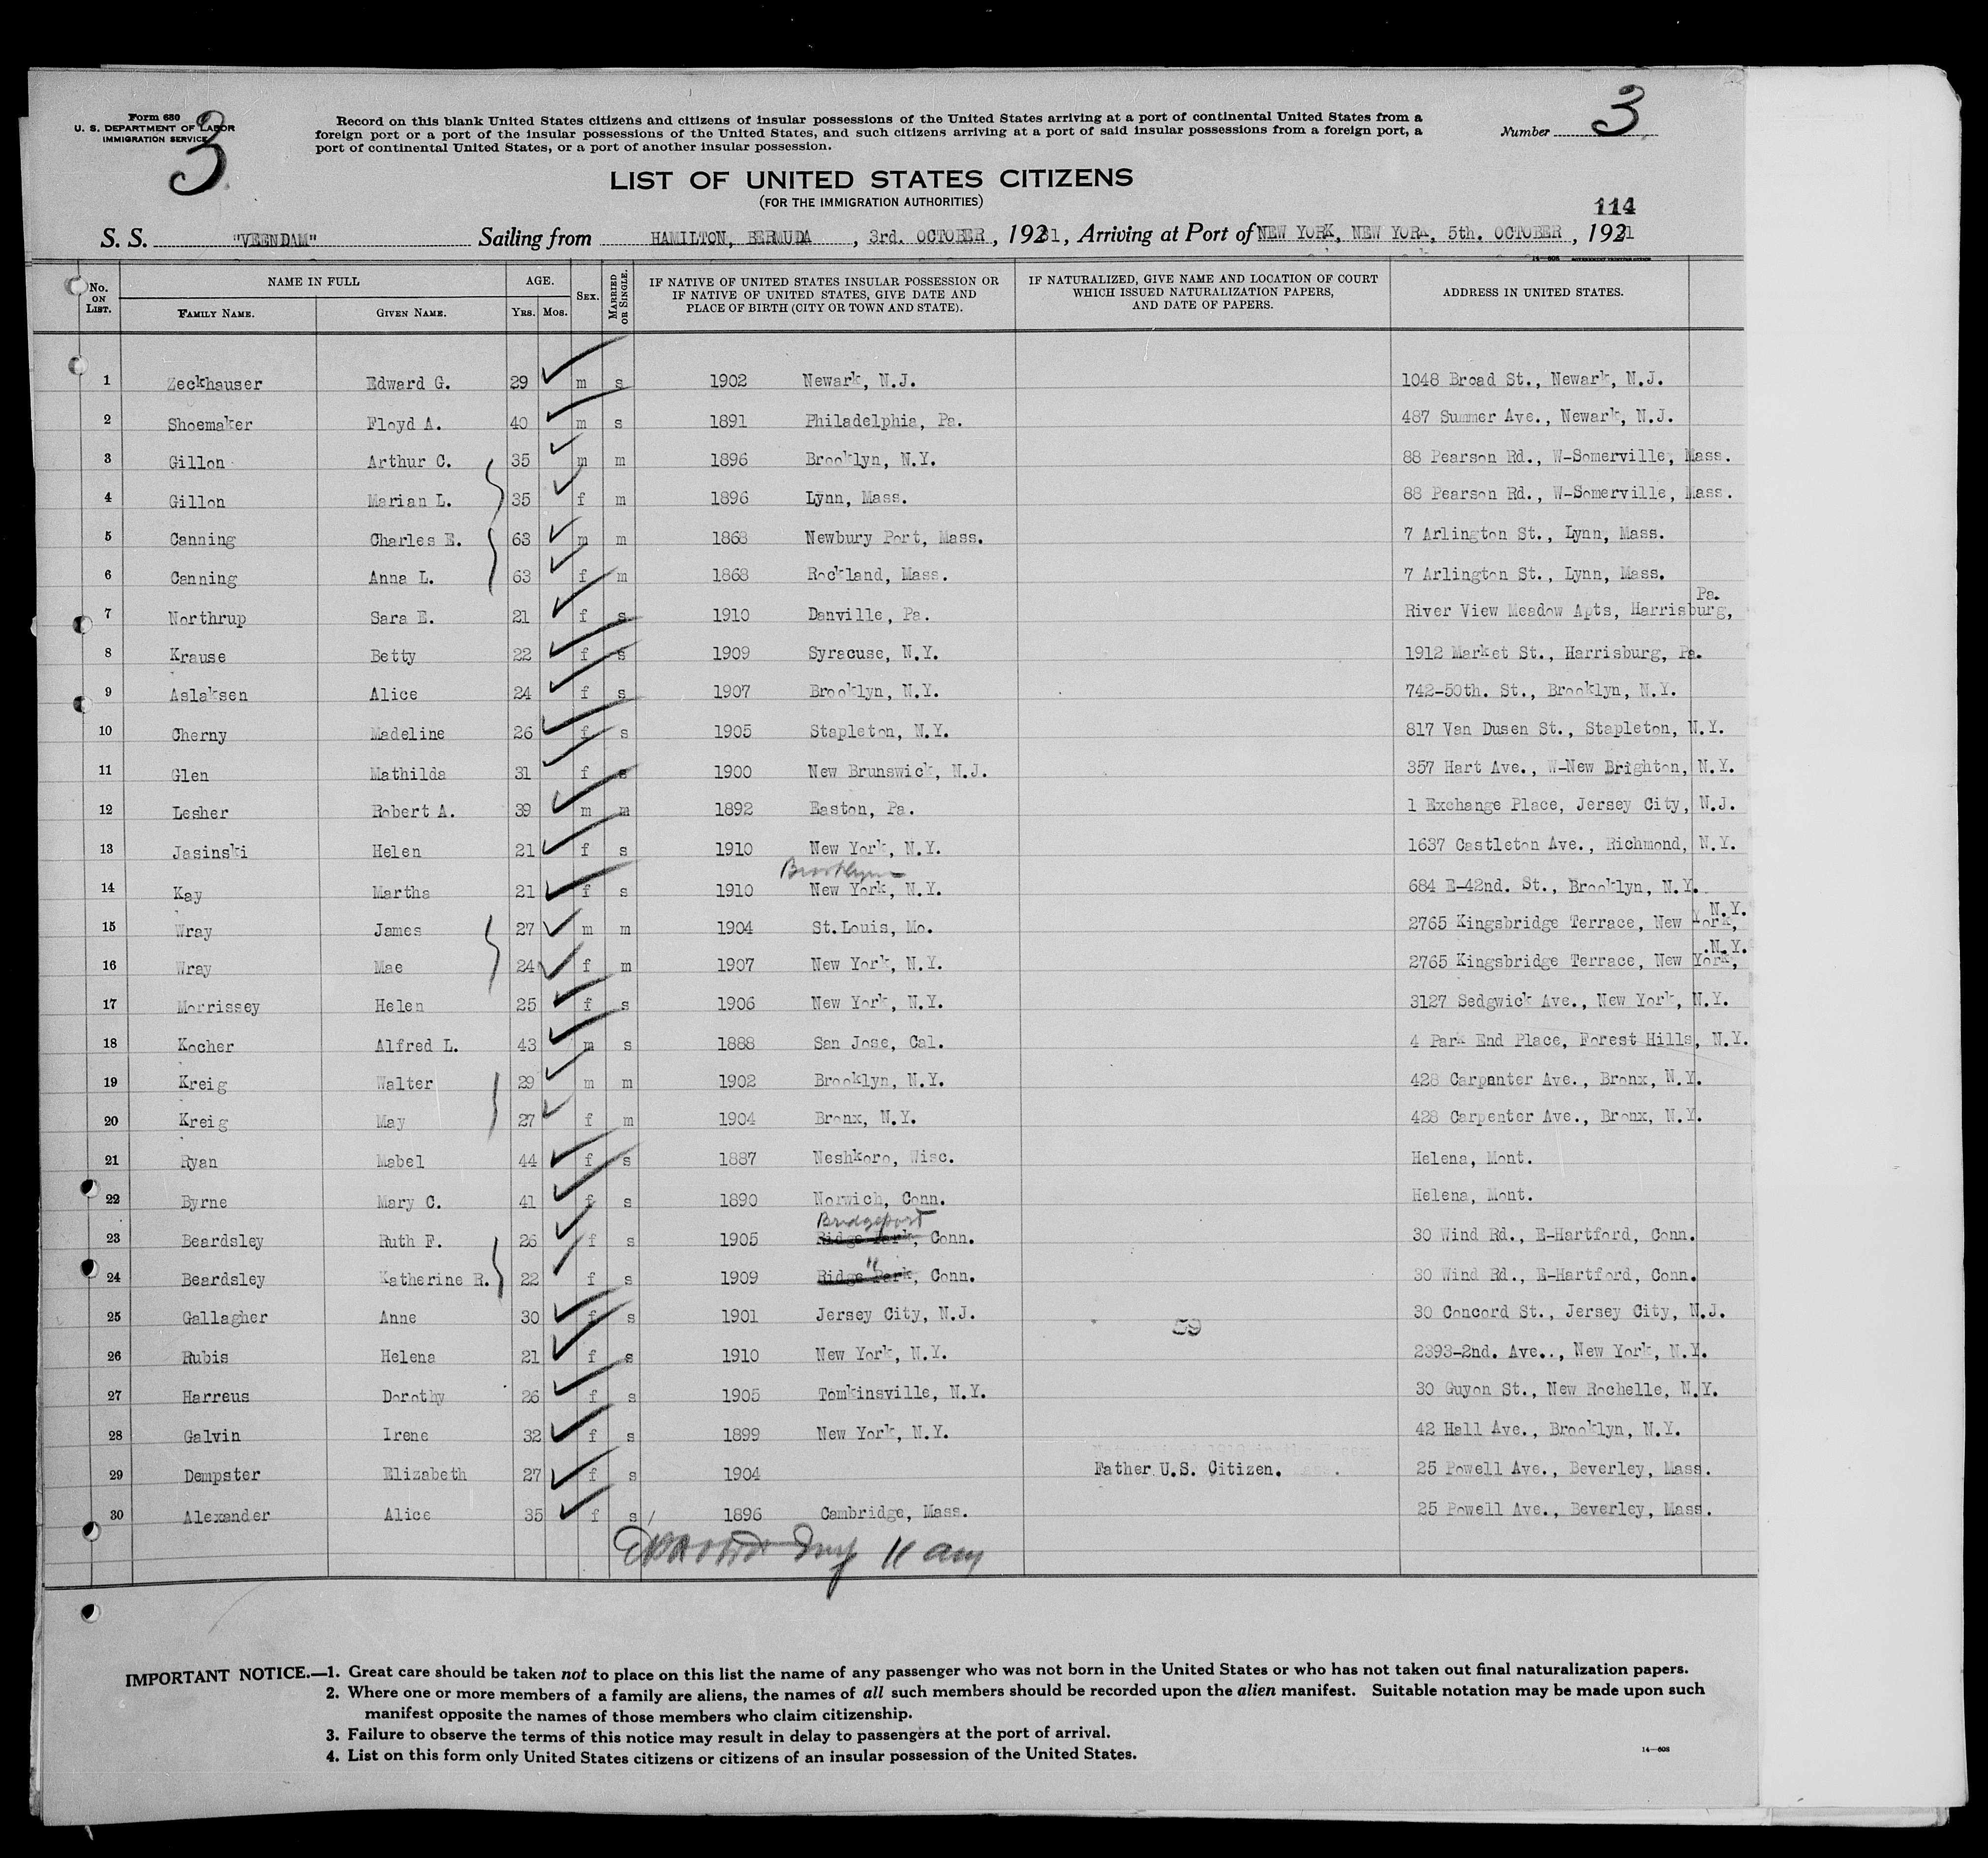 Form 630
U. S. DEPARTMENT OF LABOR
IMMIGRATION SERVICE
3
Record on this blank United States citizens and citizens of insular possessions of the United States arriving at a port of continental United States from a
foreign port or a port of the insular possessions of the United States, and such citizens arriving at a port of said insular possessions from a foreign port, a
port of continental United States, or a port of another insular possession.
Number 3
LIST OF UNITED STATES CITIZENS
(FOR THE IMMIGRATION AUTHORITIES)
114
S. S. "VEENDAM" Sailing from HAMILTON, BERMUDA, 3rd. OCTOBER, 1931, Arriving at Port of NEW YORK, NEW YORK, 5th. OCTOBER, 1931
No. ON LIST. NAME IN FULL FAMILY NAME. GIVEN NAME. AGE. YRS. MOS. SEX. MARRIED OR SINGLE. IF NATIVE OF UNITED STATES INSULAR POSSESSION OR IF NATIVE OF UNITED STATES, GIVE DATE AND PLACE OF BIRTH (CITY OR TOWN AND STATE). IF NATURALIZED, GIVE NAME AND LOCATION OF COURT WHICH ISSUED NATURALIZATION PAPERS, AND DATE OF PAPERS. ADDRESS IN UNITED STATES.
1 Zeckhauser Edward G. 29 m s 1902 Newark, N.J. 1048 Broad St., Newark, N.J.
2 Shoemaker Floyd A. 40 m s 1891 Philadelphia, Pa. 487 Summer Ave., Newark, N.J.
3 Gillon Arthur C. 35 m m 1896 Brooklyn, N.Y. 88 Pearson Rd., W-Somerville, Mass.
4 Gillon Marian L. 35 f m 1896 Lynn, Mass. 88 Pearson Rd., W-Somerville, Mass.
5 Canning Charles E. 63 m m 1868 Newbury Port, Mass. 7 Arlington St., Lynn, Mass.
6 Canning Anna L. 63 f m 1868 Rockland, Mass. 7 Arlington St., Lynn, Mass.
7 Northrup Sara E. 21 f s 1910 Danville, Pa. River View Meadow Apts, Harrisburg, Pa.
8 Krause Betty 22 f s 1909 Syracuse, N.Y. 1912 Market St., Harrisburg, Pa.
9 Aslaksen Alice 24 f s 1907 Brooklyn, N.Y. 742-50th. St., Brooklyn, N.Y.
10 Cherny Madeline 26 f s 1905 Stapleton, N.Y. 817 Van Dusen St., Stapleton, N.Y.
11 Glen Mathilda 31 f s 1900 New Brunswick, N.J. 357 Hart Ave., W-New Brighton, N.Y.
12 Lesher Robert A. 39 m m 1892 Easton, Pa. 1 Exchange Place, Jersey City, N.J.
13 Jasinski Helen 21 f s 1910 New York, N.Y. 1637 Castleton Ave., Richmond, N.Y.
Brooklyn
14 Kay Martha 21 f s 1910 New York, N.Y. 684 E-42nd. St., Brooklyn, N.Y.
15 Wray James 27 m m 1904 St.Louis, Mo. 2765 Kingsbridge Terrace, New York, N.Y.
16 Wray Mae 24 f m 1907 New York, N.Y. 2765 Kingsbridge Terrace, New York, N.Y.
17 Morrissey Helen 25 f s 1906 New York, N.Y. 3127 Sedgwick Ave., New York, N.Y.
18 Kocher Alfred L. 43 m s 1888 San Jose, Cal. 4 Park End Place, Forest Hills, N.Y.
19 Kreig Walter 29 m m 1902 Brooklyn, N.Y. 428 Carpanter Ave., Bronx, N.Y.
20 Kreig May 27 f m 1904 Bronx, N.Y. 428 Carpenter Ave., Bronx, N.Y.
21 Ryan Mabel 44 f s 1887 Neshkoro, Wisc. Helena, Mont.
22 Byrne Mary C. 41 f s 1890 Norwich, Conn. Helena, Mont.
Bridgeport
23 Beardsley Ruth F. 26 f s 1905 Ridge Park, Conn. 30 Wind Rd., E-Hartford, Conn.
"
24 Beardsley Katherine R. 22 f s 1909 Ridge Park, Conn. 30 Wind Rd., E-Hartford, Conn.
25 Gallagher Anne 30 f s 1901 Jersey City, N.J. 30 Concord St., Jersey City, N.J.
59
26 Rubis Helena 21 f s 1910 New York, N.Y. 2393-2nd. Ave.., New York, N.Y.
27 Harreus Dorothy 26 f s 1905 Tomkinsville, N.Y. 30 Guyon St., New Rochelle, N.Y.
28 Galvin Irene 32 f s 1899 New York, N.Y. 42 Hall Ave., Brooklyn, N.Y.
29 Dempster Elizabeth 27 f s 1904 Father U.S. Citizen. 25 Powell Ave., Beverley, Mass.
30 Alexander Alice 35 f s 1896 Cambridge, Mass. 25 Powell Ave., Beverley, Mass.
11 am
IMPORTANT NOTICE.—1. Great care should be taken not to place on this list the name of any passenger who was not born in the United States or who has not taken out final naturalization papers.
2. Where one or more members of a family are aliens, the names of all such members should be recorded upon the alien manifest. Suitable notation may be made upon such
manifest opposite the names of those members who claim citizenship.
3. Failure to observe the terms of this notice may result in delay to passengers at the port of arrival.
4. List on this form only United States citizens or citizens of an insular possession of the United States.
14—608